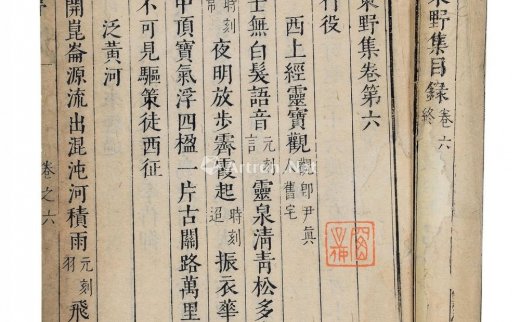 東野集目録 卷六終
東野集卷第六
行役
西上經靈寶觀 觀即尹眞舊宅
士無白髮語音 元刻言 靈泉淸青松多
時刻常 夜明放步霽霞起 時刻迢 振衣華
中頂寶氣浮四楹一片古關路萬里
不可見驅策徒西征
泛黃河
開崑崙源流出混沌河積雨 元刻羽 飛
卷之六
Artron.Net